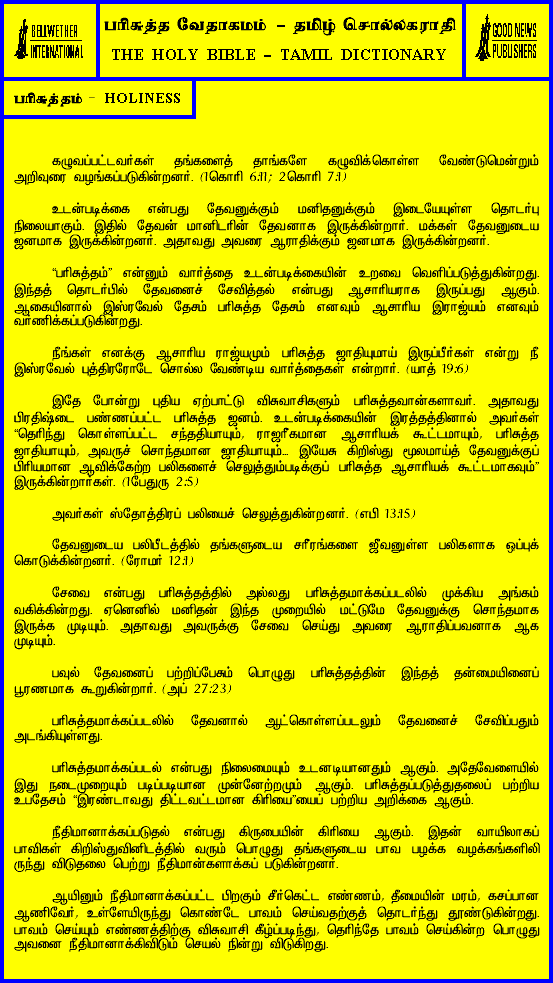 BELLWETHER
INTERNATIONAL
பரிசுத்த வேதாகமம் - தமிழ் சொல்லகராதி
THE HOLY BIBLE - TAMIL DICTIONARY
GOOD NEWS
PUBLISHERS
பரிசுத்தம் - HOLINESS
கழுவப்பட்டவர்கள் தங்களைத் தாங்களே கழுவிக்கொள்ள வேண்டுமென்றும்
அறிவுரை வழங்கப்படுகின்றனர். (1கொரி 6:11; 2கொரி 7:1)
உடன்படிக்கை என்பது தேவனுக்கும் மனிதனுக்கும் இடையேயுள்ள தொடர்பு
நிலையாகும். இதில் தேவன் மானிடரின் தேவனாக இருக்கின்றார். மக்கள் தேவனுடைய
ஜனமாக இருக்கின்றனர். அதாவது அவரை ஆராதிக்கும் ஜனமாக இருக்கின்றனர்.
“பரிசுத்தம்” என்னும் வார்த்தை உடன்படிக்கையின் உறவை வெளிப்படுத்துகின்றது.
இந்தத் தொடர்பில் தேவனைச் சேவித்தல் என்பது ஆசாரியராக இருப்பது ஆகும்.
ஆகையினால் இஸ்ரவேல் தேசம் பரிசுத்த தேசம் எனவும் ஆசாரிய இராஜ்யம் எனவும்
வர்ணிக்கப்படுகின்றது.
நீங்கள் எனக்கு ஆசாரிய ராஜ்யமும் பரிசுத்த ஜாதியுமாய் இருப்பீர்கள் என்று நீ
இஸ்ரவேல் புத்திரரோடே சொல்ல வேண்டிய வார்த்தைகள் என்றார். (யாத் 19:6)
இதே போன்று புதிய ஏற்பாட்டு விசுவாசிகளும் பரிசுத்தவான்களாவர். அதாவது
பிரதிஷ்டை பண்ணப்பட்ட பரிசுத்த ஜனம். உடன்படிக்கையின் இரத்தத்தினால் அவர்கள்
“தெரிந்து கொள்ளப்பட்ட சந்ததியாயும், ராஜரீகமான ஆசாரியக் கூட்டமாயும், பரிசுத்த
ஜாதியாயும், அவருச் சொந்தமான ஜாதியாயும்... இயேசு கிறிஸ்து மூலமாய்த் தேவனுக்குப்
பிரியமான ஆவிக்கேற்ற பலிகளைச் செலுத்தும்படிக்குப் பரிசுத்த ஆசாரியக் கூட்டமாகவும்”
இருக்கின்றார்கள். (1பேதுரு 2:5)
அவர்கள் ஸ்தோத்திரப் பலியைச் செலுத்துகின்றனர். (எபி 13:15)
தேவனுடைய பலிபீடத்தில் தங்களுடைய சரீரங்களை ஜீவனுள்ள பலிகளாக ஒப்புக்
கொடுக்கின்றனர். (ரோமர் 12:1)
சேவை என்பது பரிசுத்தத்தில் அல்லது பரிசுத்தமாக்கப்படலில் முக்கிய அங்கம்
வகிக்கின்றது. ஏனெனில் மனிதன் இந்த முறையில் மட்டுமே தேவனுக்கு சொந்தமாக
இருக்க முடியும். அதாவது அவருக்கு சேவை செய்து அவரை ஆராதிப்பவனாக ஆக
முடியும்.
பவுல் தேவனைப் பற்றிப்பேசும் பொழுது பரிசுத்தத்தின் இந்தத் தன்மையினைப்
பூரணமாக கூறுகின்றார். (அப் 27:23)
பரிசுத்தமாக்கப்படலில் தேவனால் ஆட்கொள்ளப்படலும் தேவனைச் சேவிப்பதும்
அடங்கியுள்ளது.
பரிசுத்தமாக்கப்படல் என்பது நிலைமையும் உடனடியானதும் ஆகும். அதேவேளையில்
இது நடைமுறையும் படிப்படியான முன்னேற்றமும் ஆகும். பரிசுத்தப்படுத்துதலைப் பற்றிய
உபதேசம் “இரண்டாவது திட்டவட்டமான கிரியை”யைப் பற்றிய அறிக்கை ஆகும்.
நீதிமானாக்கப்படுதல் என்பது கிருபையின் கிரியை ஆகும். இதன் வாயிலாகப்
பாவிகள் கிறிஸ்துவினிடத்தில் வரும் பொழுது தங்களுடைய பாவ பழக்க வழக்கங்களிலி
ருந்து விடுதலை பெற்று நீதிமான்களாக்கப் படுகின்றனர்.
ஆயினும் நீதிமானாக்கப்பட்ட பிறகும் சீர்கெட்ட எண்ணம், தீமையின் மரம், கசப்பான
ஆணிவேர், உள்ளேயிருந்து கொண்டே பாவம் செய்வதற்குத் தொடர்ந்து தூண்டுகின்றது.
பாவம் செய்யும் எண்ணத்திற்கு விசுவாசி கீழ்ப்படிந்து, தெரிந்தே பாவம் செய்கின்ற பொழுது
அவனை நீதிமானாக்கிவிடும் செயல் நின்று விடுகிறது.